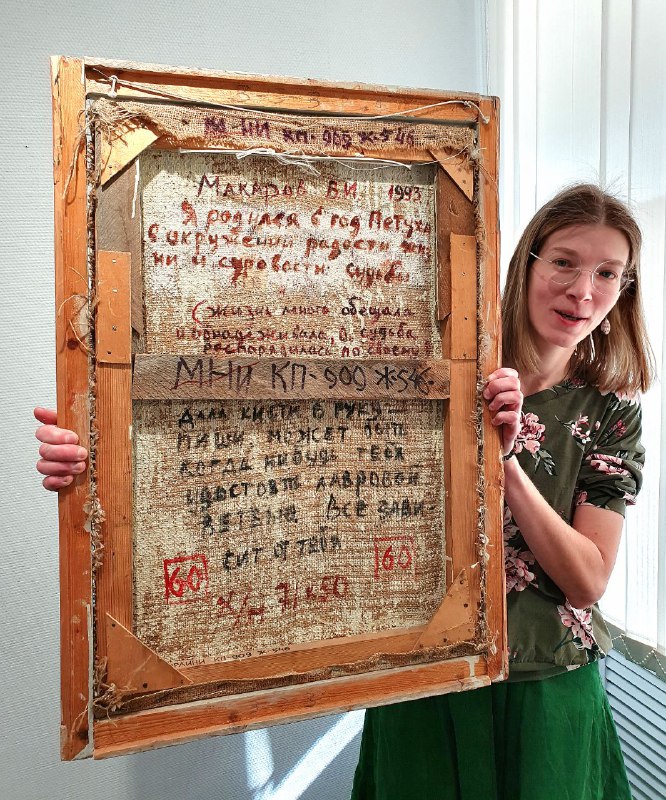 МНИ КП-909 Ж-546
Макаров В.И. 1993
Я родился в год Петуха
в окружении радости жиз
ни и суровости судьбы
(жизнь много обещала
и обнадёживала, а, судьба
распорядилась по своему
МНИ КП-909 Ж-546
дала кисти в руки
пиши может быть
когда нибудь тебя
удостоят лавровой
ветвью Все зави-
сит от тебя
60
60
х/м 71х50
КП-909 Ж-546